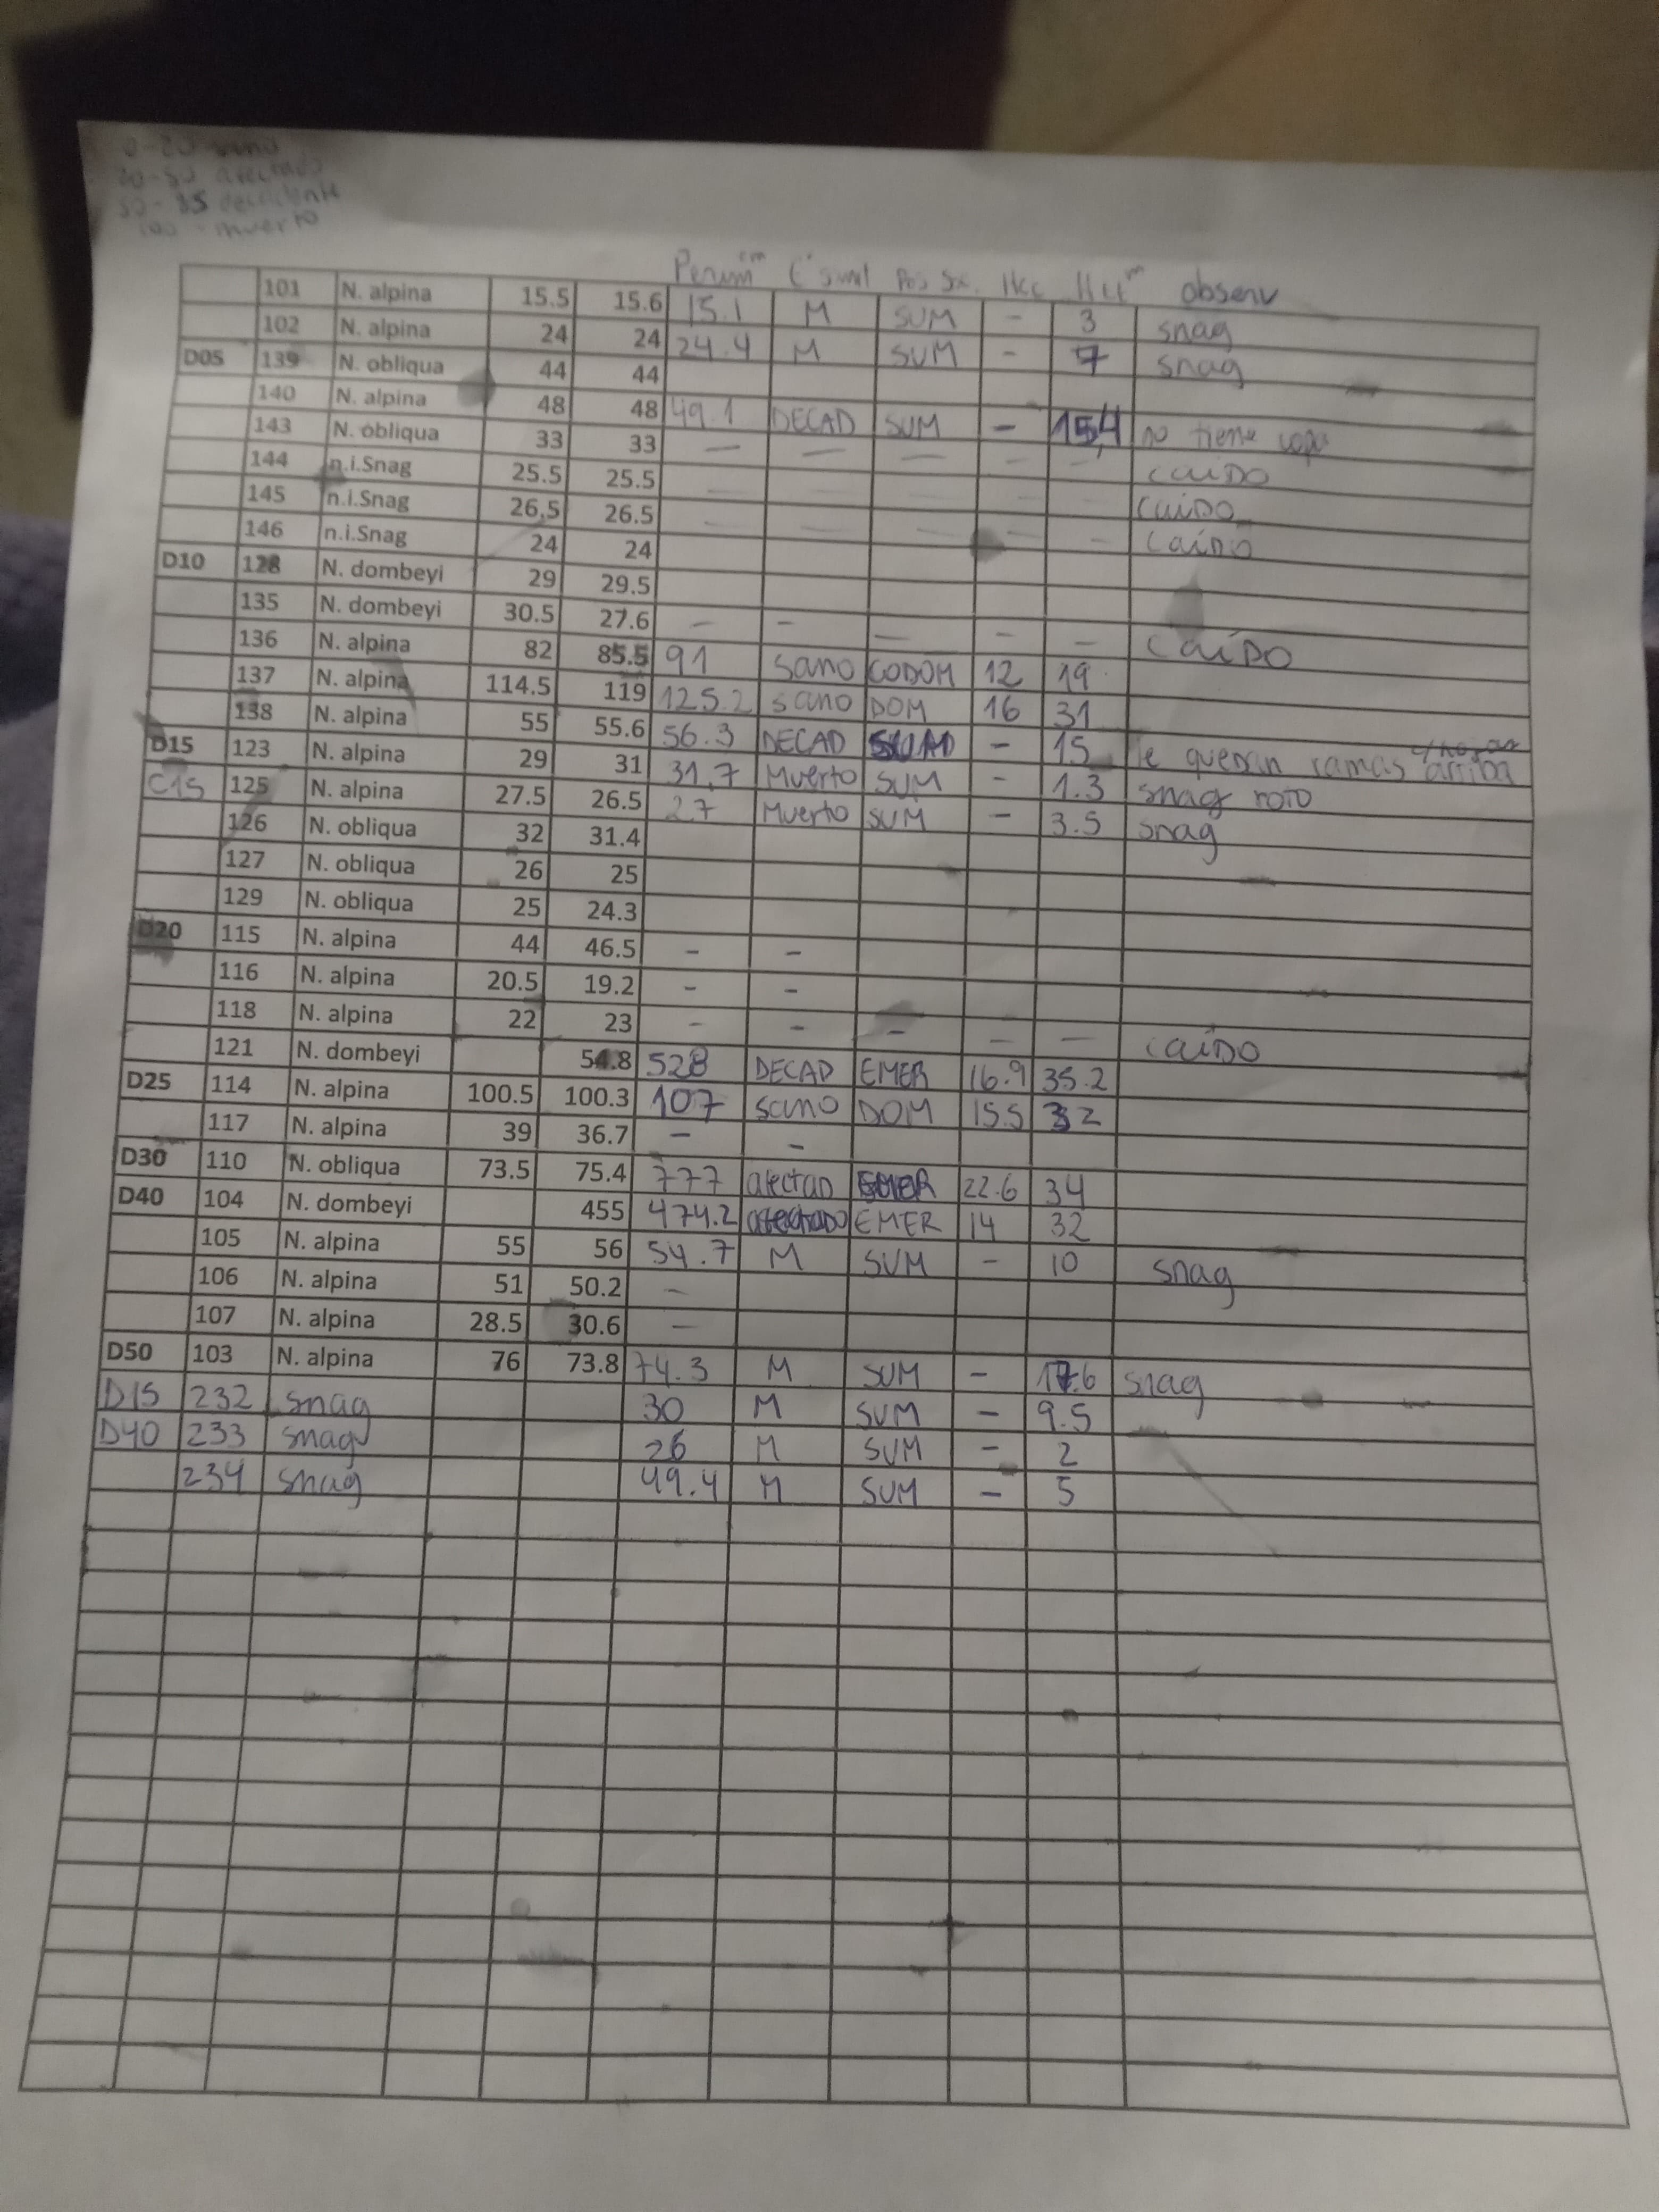 0-20 sano
20-50 afectado
50-85 decadente
100 - muerto
Perim cm C sanit Pos Soc. Hcc Hct m observ
101 N. alpina 15.5 15.6 15.1 M SUM - 3 snag
102 N. alpina 24 24 24.4 M SUM - 7 snag
D05 139 N. obliqua 44 44
140 N. alpina 48 48 49.1 DECAD SUM - 15,4 no tiene copa
143 N. obliqua 33 33 — — — - - CAIDO
144 n.i.Snag 25.5 25.5 — — — - - CAIDO
145 n.i.Snag 26.5 26.5 — — — - - CAÍDO
146 n.i.Snag 24 24
D10 128 N. dombeyi 29 29.5
135 N. dombeyi 30.5 27.6 - - — - - CAÍDO
136 N. alpina 82 85.5 91 sano CODOM 12 19
137 N. alpina 114.5 119 125.2 sano DOM 16 31
138 N. alpina 55 55.6 56.3 DECAD - 15 le quedan ramas c/hojas arriba
D15 123 N. alpina 29 31 31,7 Muerto SUM - 1.3 snag roto
C15 125 N. alpina 27.5 26.5 27 Muerto SUM - 3.5 snag
126 N. obliqua 32 31.4
127 N. obliqua 26 25
129 N. obliqua 25 24.3
D20 115 N. alpina 44 46.5 - -
116 N. alpina 20.5 19.2 - -
118 N. alpina 22 23 - - - - — CAÍDO
121 N. dombeyi 54.8 528 DECAD EMER 16.9 35.2
D25 114 N. alpina 100.5 100.3 107 sano DOM 15.5 32
117 N. alpina 39 36.7 - -
D30 110 N. obliqua 73.5 75.4 777 afectad EMER 22.6 34
D40 104 N. dombeyi 455 474.2 afectado EMER 14 32
105 N. alpina 55 56 54.7 M SUM - 10 snag
106 N. alpina 51 50.2 -
107 N. alpina 28.5 30.6 -
D50 103 N. alpina 76 73.8 74.3 M SUM - 17.6 snag
D15 232 snag 30 M SUM - 9.5
D40 233 snag 26 M SUM - 2
234 snag 49.4 M SUM - 5